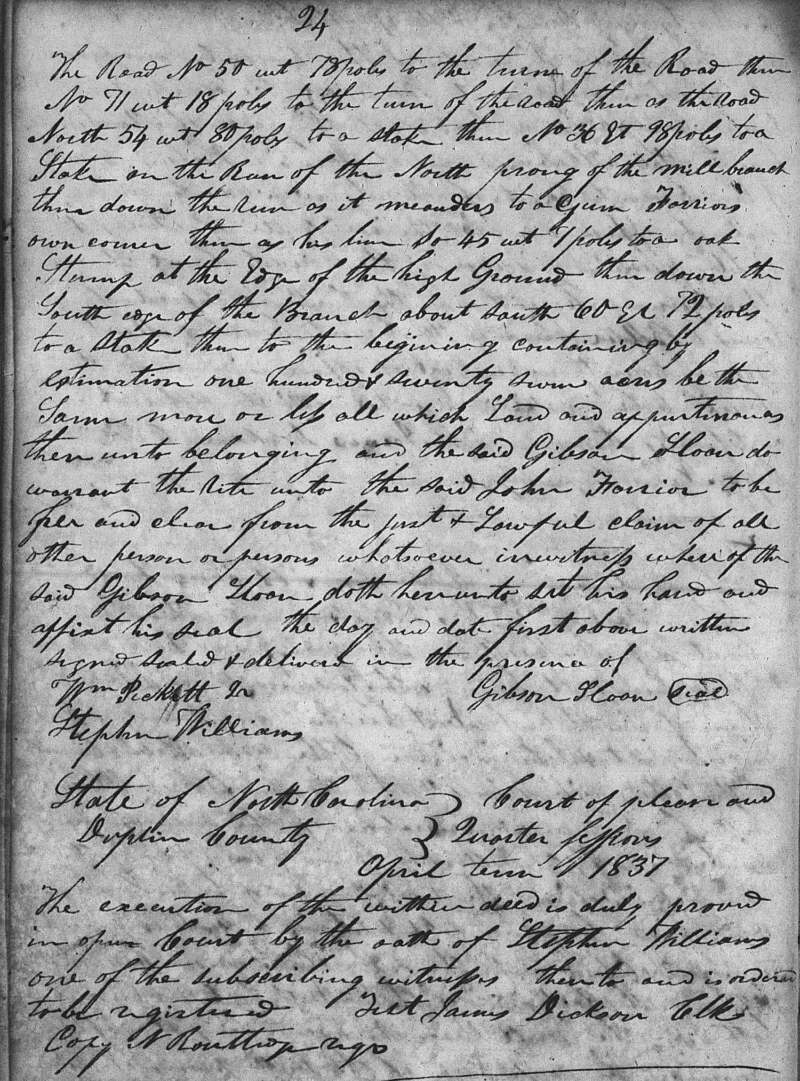 24
The Road No 50 wt 78 poles to the turn of the Road then
No 71 wt 18 poles to the turn of the road then as the road
North 54 wt 80 poles to a stake then No 36 Et 98 poles to a
Stake in the Run of the North prong of the mill branch
then down the run as it meanders to a Gum Farriors
own corner then as his line So 45 wt 7 poles to a oak
Stump at the Edge of the high Ground then down the
South edge of the Branch about south 60 Et 72 poles
to a stake then to the begining containing by
estimation one hundred & seventy seven acres be the
Same more or less all which Land and appurtinances
there unto belonging and the said Gibson Sloan do
warrant the rite unto the said John Farrior to be
free and clear from the just & Lawful claim of all
other person or persons whatsoever in witness where of the
said Gibson Sloan doth here unto set his hand and
affixt his seal the day and date first above written
signed sealed & delivered in the presence of
Wm Pickett Jr Gibson Sloan seal
Stephen Williams
State of North Carolina } Court of pleas and
Duplin County } Quarter sessions
April term 1837
The execution of the within deed is duly proved
in open Court by the oath of Stephen Williams
one of the subscribing witnesses thereto and is ordered
to be registered Test James Dickson Clk
Copy N Bouttrop regr